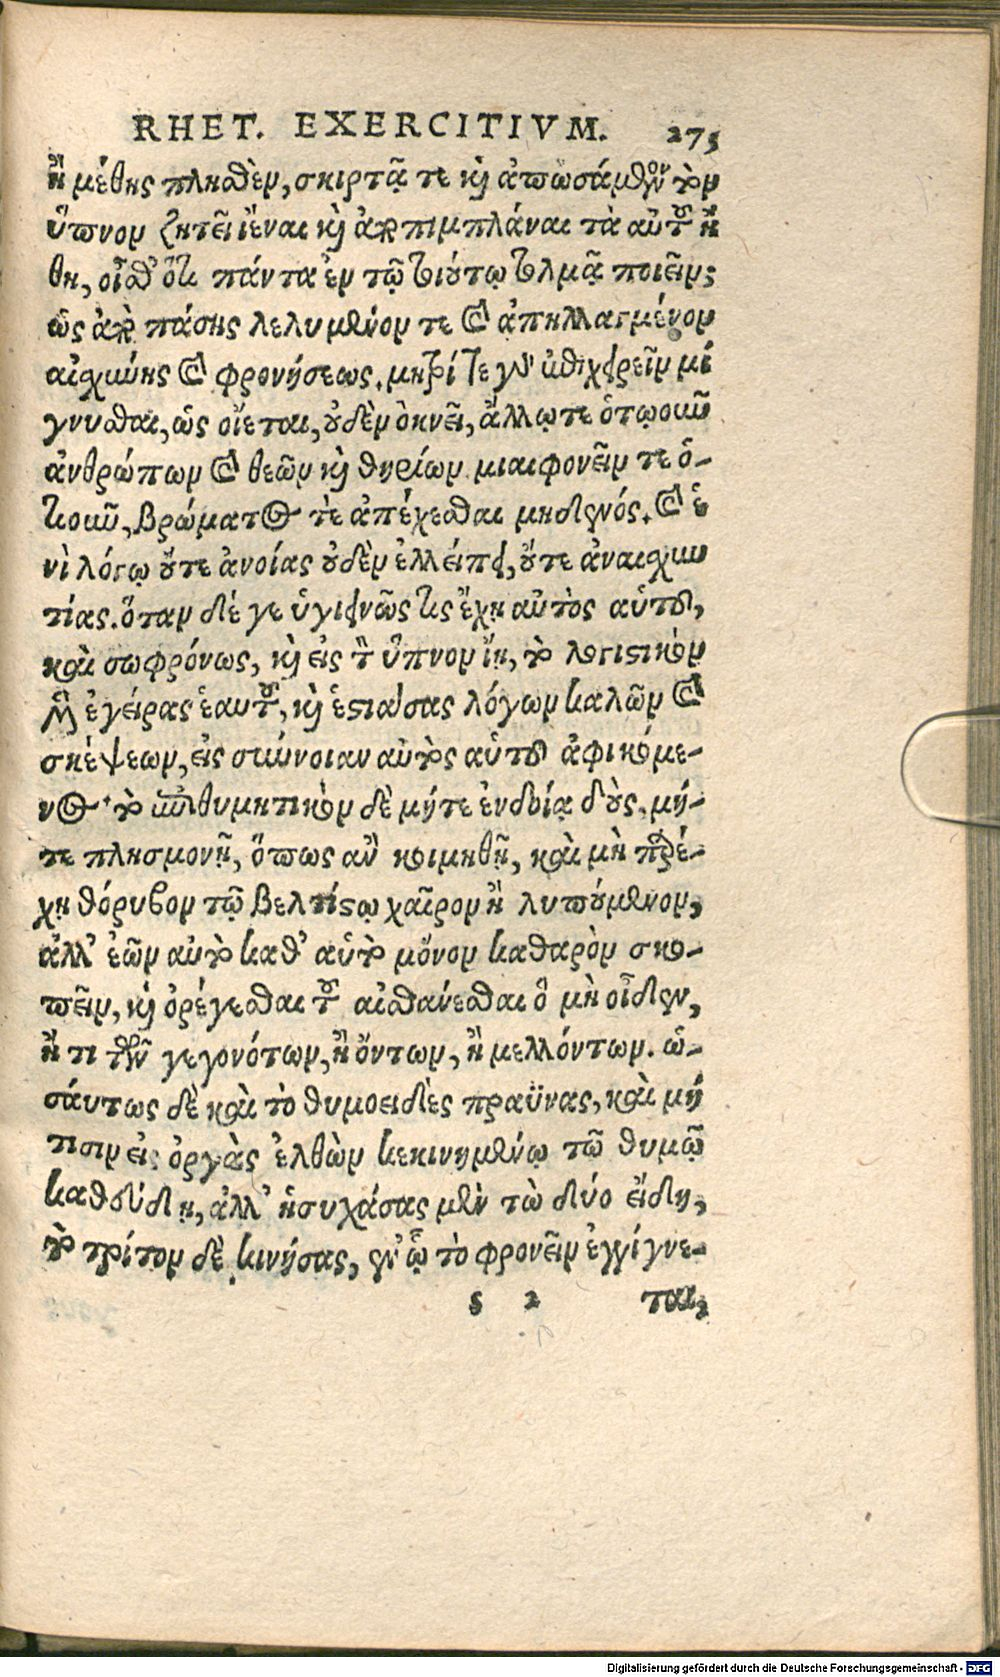 RHET. EXERCITIVM. 275
ἢ μέθης πλησθὲν, σκιρτᾷ τε καὶ ἀπωσάμενον τὸν
ὕπνον ζητεῖ ἰέναι καὶ ἀποπιμπλάναι τὰ αὑτοῦ ἤ
θη, οἶσθ' ὅτι πάντα ἐν τῷ τοιούτῳ τολμᾷ ποιεῖν,
ὡς ἀπὸ πάσης λελυμένον τε καὶ ἀπηλλαγμένον
αἰσχύνης καὶ φρονήσεως. μητρί τε γὰρ ἐπιχειρεῖν μί
γνυσθαι, ὡς οἴεται, οὐδὲν ὀκνεῖ, ἄλλῳ τε ὁτῳοῦν
ἀνθρώπων καὶ θεῶν καὶ θηρίων. μιαιφονεῖν τε ὁ-
τιοῦν, βρώματος τε ἀπέχεσθαι μηδενός. καὶ ἑ
νὶ λόγῳ οὔτε ἀνοίας οὐδὲν ἐλλείπει, οὔτε ἀναισχυν
τίας. ὅταν δέ γε ὑγιεινῶς τις ἔχῃ αὐτὸς αὑτοῦ,
καὶ σωφρόνως, καὶ εἰς τὸν ὕπνον ἴῃ, τὸ λογιστικὸν
μὲν ἐγείρας ἑαυτοῦ, καὶ ἑστιάσας λόγων καλῶν καὶ
σκέψεων, εἰς σύννοιαν αὐτὸς αὑτοῦ ἀφικόμε-
νος· τὸ ἐπιθυμητικὸν δὲ μήτε ἐνδείᾳ δοὺς, μή-
τε πλησμονῇ, ὅπως ἂν κοιμηθῇ, καὶ μὴ παρέ-
χῃ θόρυβον τῷ βελτίστῳ χαῖρον ἢ λυπούμενον,
ἀλλ' ἐῶν αὐτὸ καθ' αὑτὸ μόνον καθαρὸν σκο-
πεῖν, καὶ ὀρέγεσθαι τοῦ αἰσθάνεσθαι ὃ μὴ οἶδεν,
ἤ τι τῶν γεγονότων, ἢ ὄντων, ἢ μελλόντων. ὡ-
σαύτως δὲ καὶ τὸ θυμοειδὲς πραΰνας, καὶ μή
τισιν εἰς ὀργὰς ἐλθὼν κεκινημένῳ τῷ θυμῷ
καθεύδῃ, ἀλλ' ἡσυχάσας μὲν τὼ δύο εἴδη,
τὸ τρίτον δὲ κινήσας, ἐν ᾧ τὸ φρονεῖν ἐγγίγνε-
s 2 ται,
Digitalisierung gefördert durch die Deutsche Forschungsgemeinschaft - DFG